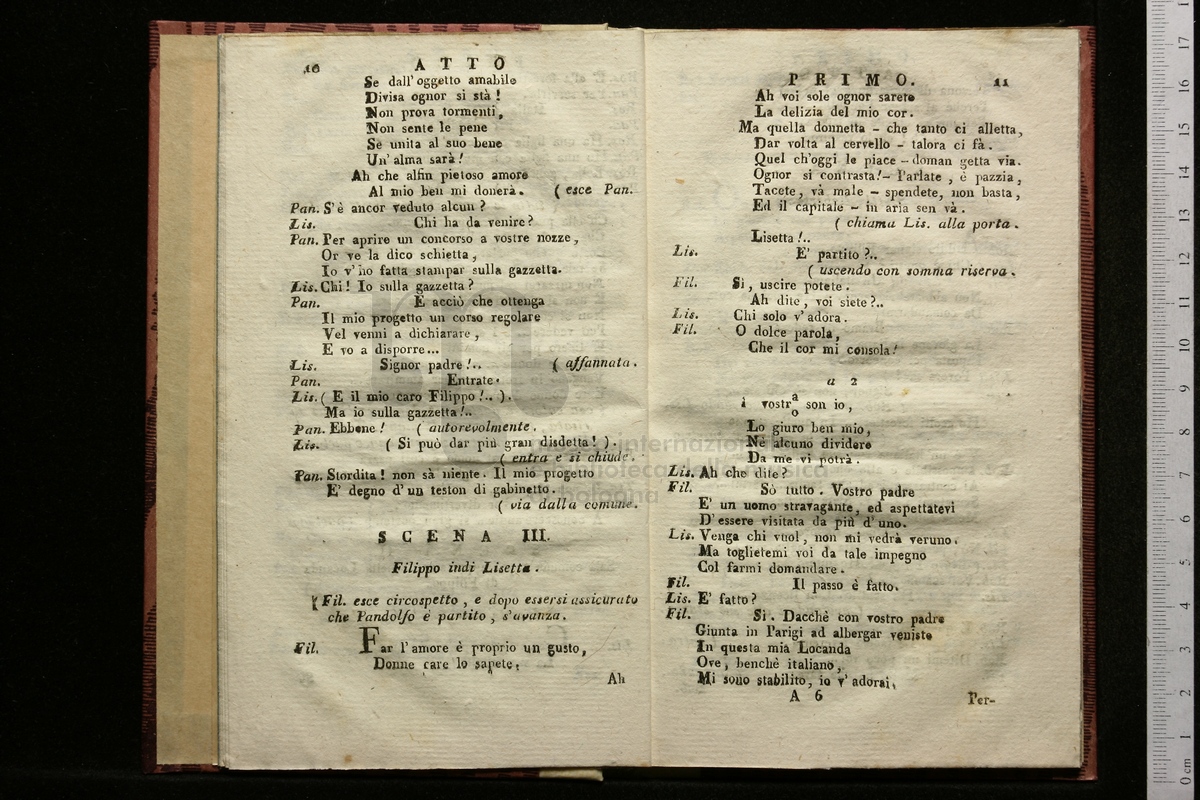 10 ATTO
Se dall'oggetto amabile
Divisa ognor si stà!
Non prova tormenti,
Non sente le pene
Se unita al suo bene
Un'alma sarà!
Ah che alfin pietoso amore
Al mio ben mi donerà. (esce Pan.
Pan. S'è ancor veduto alcun?
Lis. Chi ha da venire?
Pan. Per aprire un concorso a vostre nozze,
Or ve la dico schietta,
Io v'ho fatta stampar sulla gazzetta.
Lis. Chi! Io sulla gazzetta?
Pan. E acciò che ottenga
Il mio progetto un corso regolare
Vel venni a dichiarare,
E vo a disporre...
Lis. Signor padre!.. (affannata.
Pan. Entrate.
Lis. (E il mio caro Filippo!..).
Ma io sulla gazzetta!..
Pan. Ebbene! (autorevolmente.
Lis. (Si può dar più gran disdetta!).
(entra e si chiude.
Pan. Stordita! non sà niente. Il mio progetto
E' degno d'un teston di gabinetto.
(via dalla comune.
SCENA III.
Filippo indi Lisetta.
Fil. esce circospetto, e dopo essersi assicurato
che Pandolfo è partito, s'avanza.
Fil. Far l'amore è proprio un gusto,
Donne care lo sapete;
Ah
PRIMO. 11
Ah voi sole ognor sarete
La delizia del mio cor.
Ma quella donnetta - che tanto ci alletta,
Dar volta al cervello - talora ci fà.
Quel ch'oggi le piace - doman getta via.
Ognor si contrasta! - Parlate, è pazzia,
Tacete, và male - spendete, non basta,
Ed il capitale - in aria sen và.
(chiama Lis. alla porta.
Lisetta!..
Lis. E' partito?..
(uscendo con somma riserva.
Fil. Si, uscire potete.
Ah dite, voi siete?..
Lis. Chi solo v'adora.
Fil. O dolce parola,
Che il cor mi consola!
a 2
i vostr a/o son io,
Lo giuro ben mio,
Nè alcuno dividere
Da me vi potrà.
Lis. Ah che dite?
Fil. Sò tutto. Vostro padre
E' un uomo stravagante, ed aspettatevi
D'essere visitata da più d'uno.
Lis. Venga chi vuol, non mi vedrà veruno.
Ma toglietemi voi da tale impegno
Col farmi domandare.
Fil. Il passo è fatto.
Lis. E' fatto?
Fil. Si. Dacchè con vostro padre
Giunta in Parigi ad albergar veniste
In questa mia Locanda
Ove, benchè italiano,
Mi sono stabilito, io v'adorai,
A 6 Per-